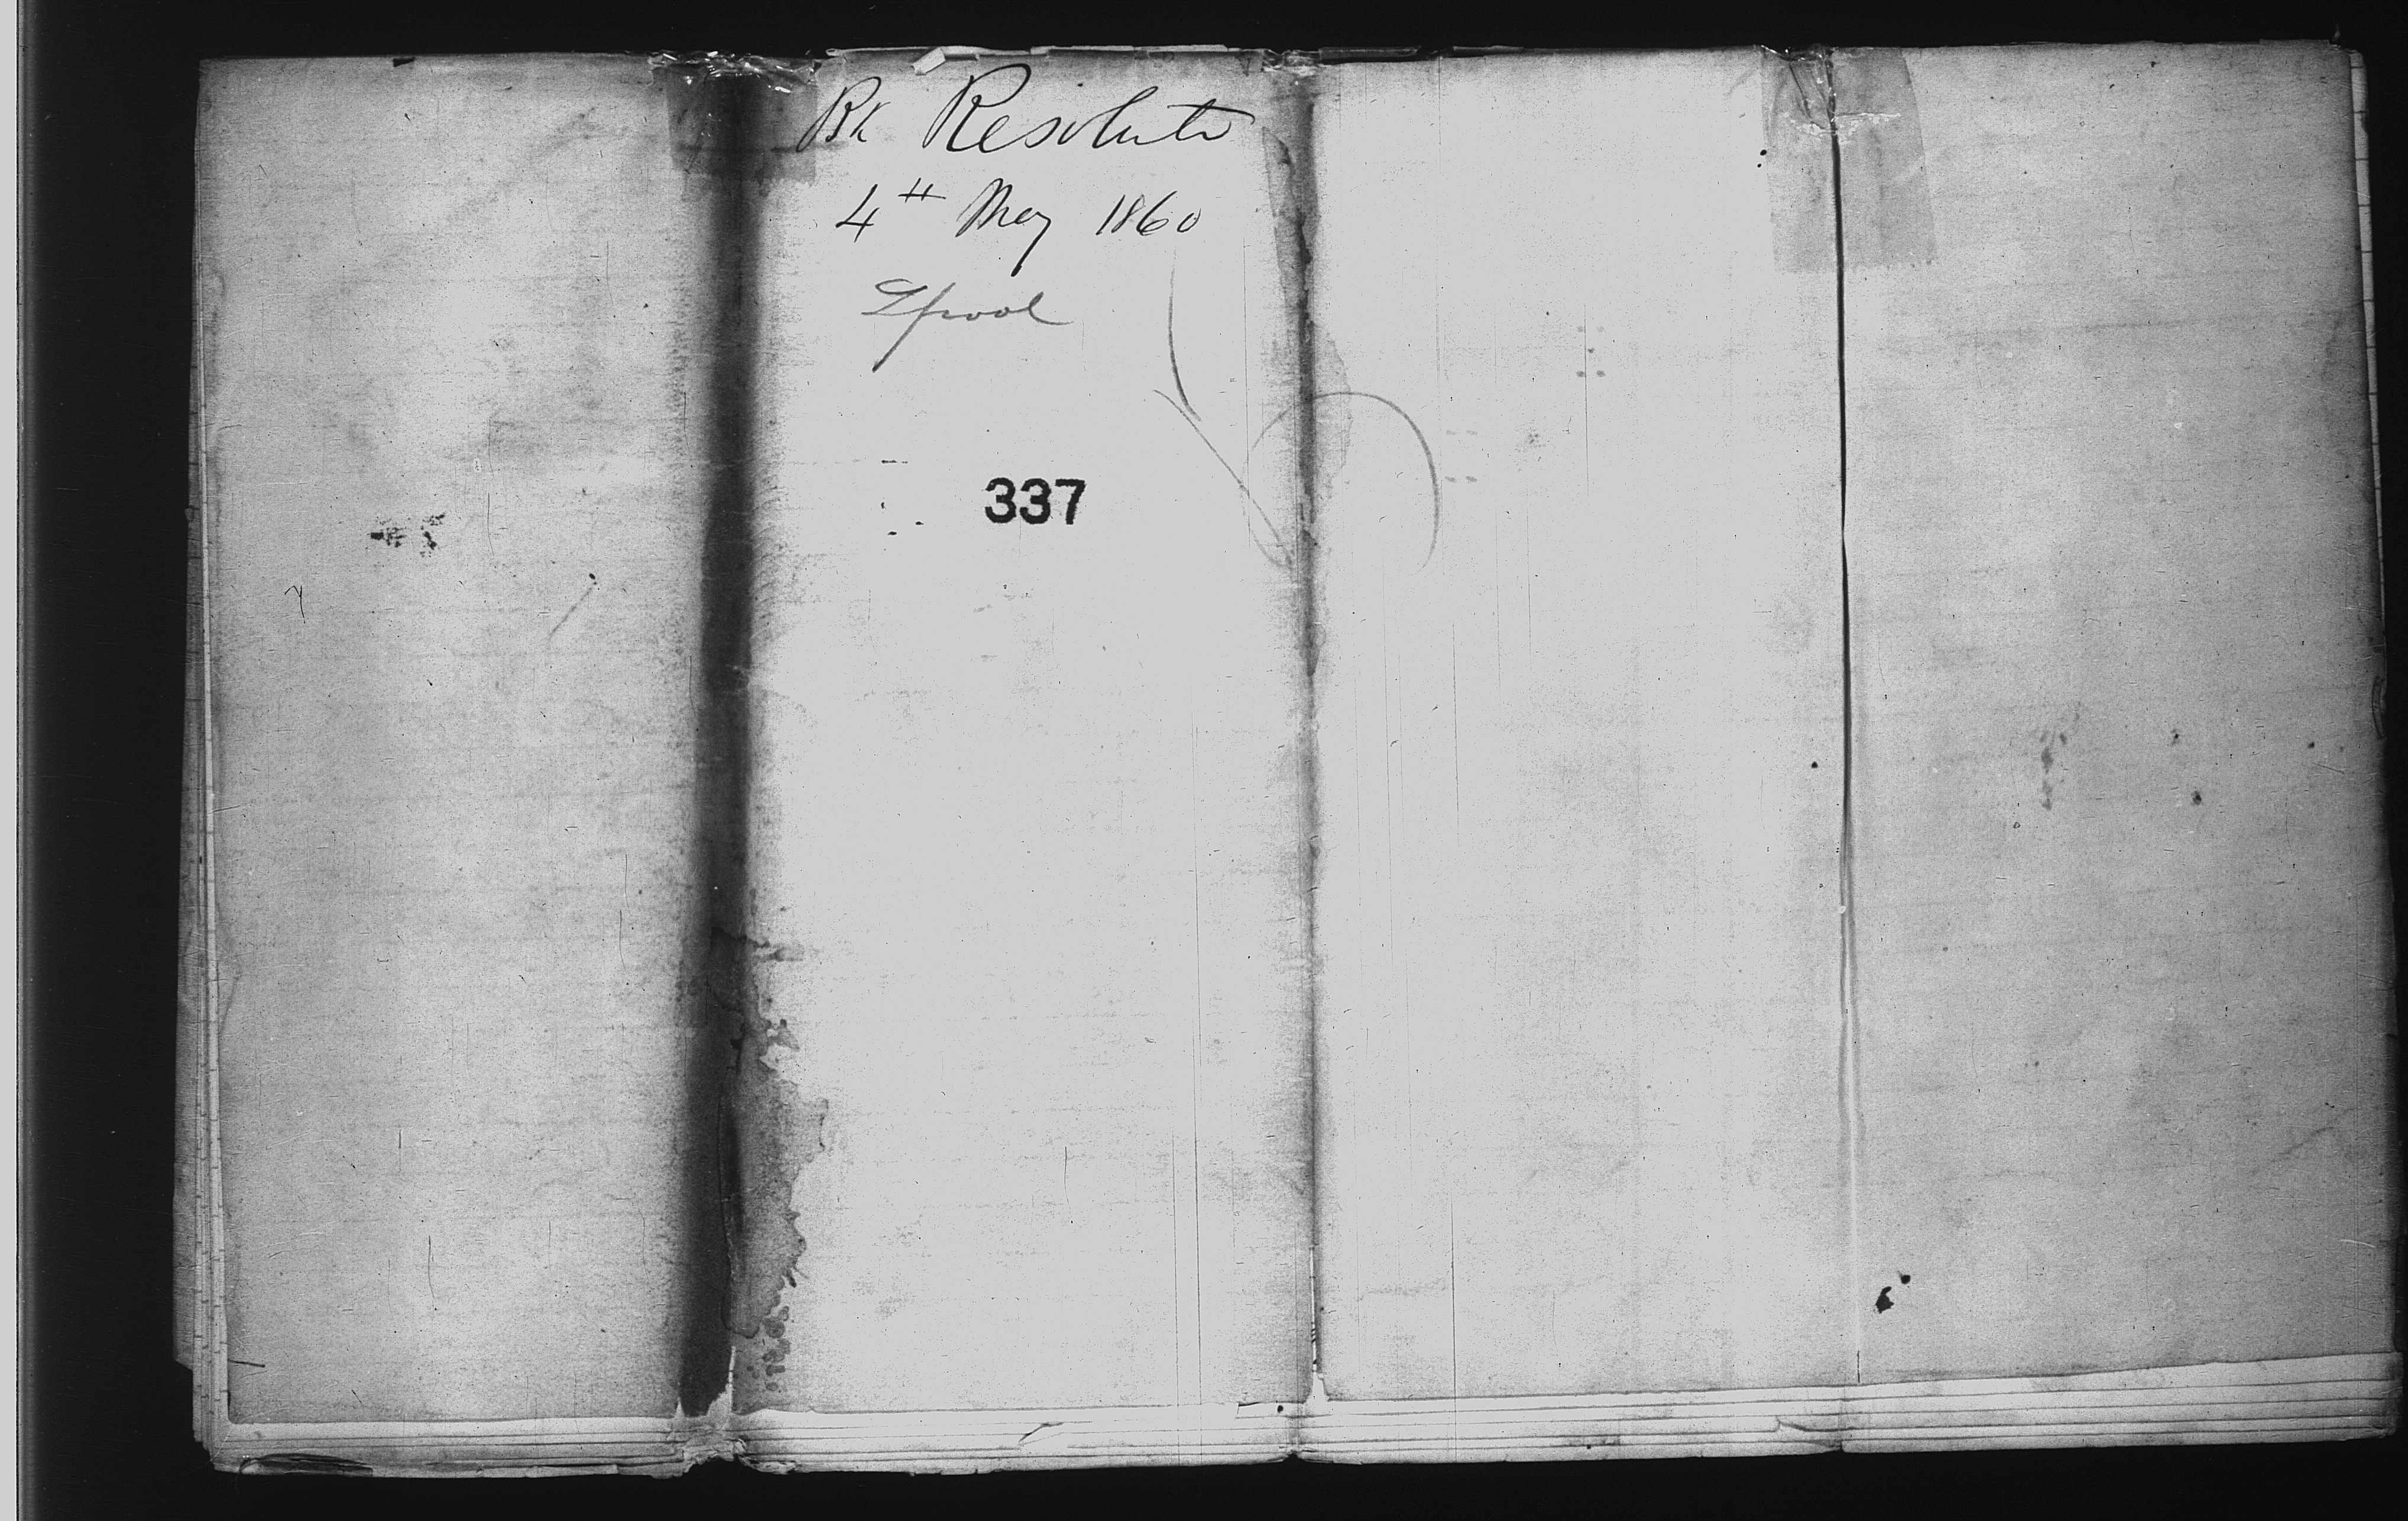 Bk Resolute
4th May 1860
Lpool
337